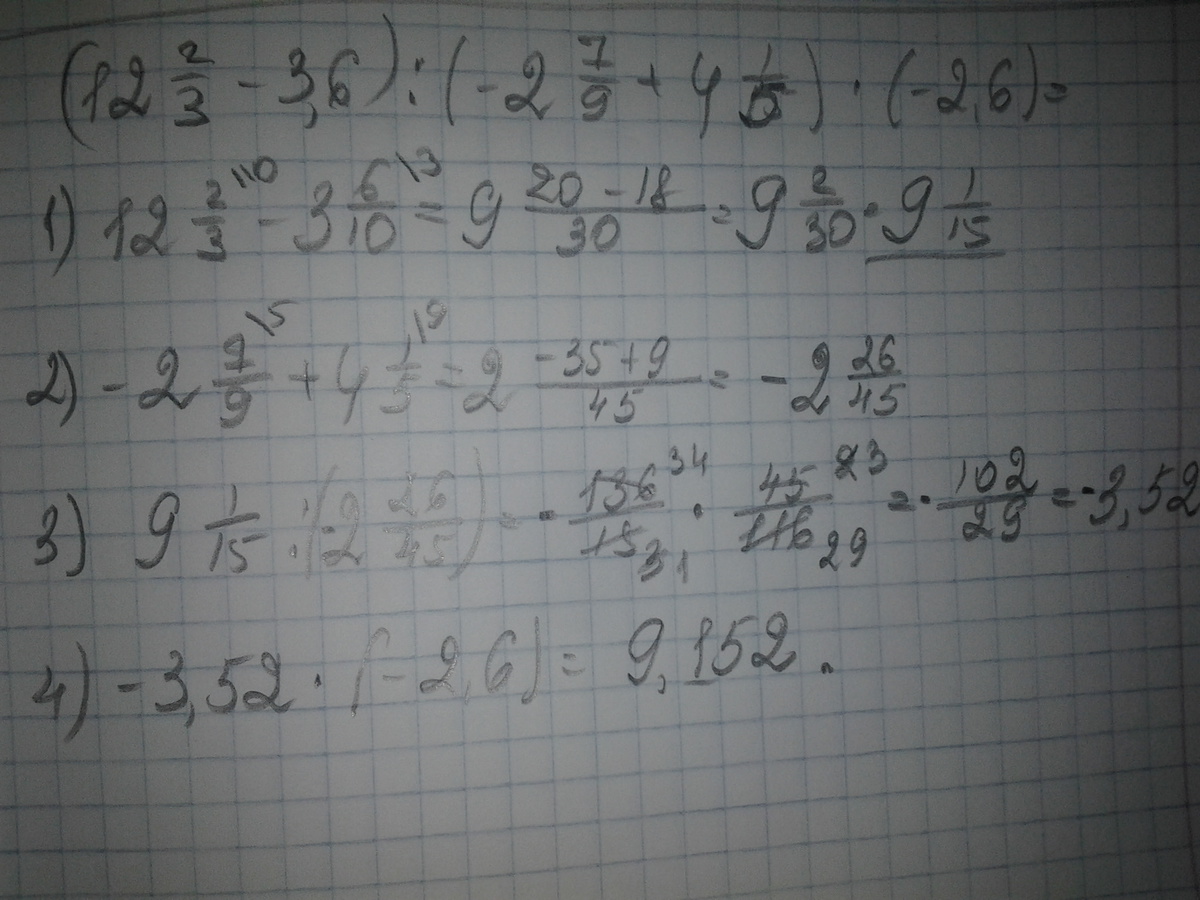 (12 2/3 - 3,6) : (-2 7/9 + 4 1/5) · (-2,6) =
1) 12 2/3 \10 - 3 6/10 \3 = 9 20-18/30 = 9 2/30 = 9 1/15
2) -2 7/9 \5 + 4 1/5 \9 = 2 -35+9/45 = -2 26/45
3) 9 1/15 : (-2 26/45) = - 136 34/15 3 1 · 45 23/116 29 = - 102/29 = -3,52
4) -3,52 · (-2,6) = 9,152.